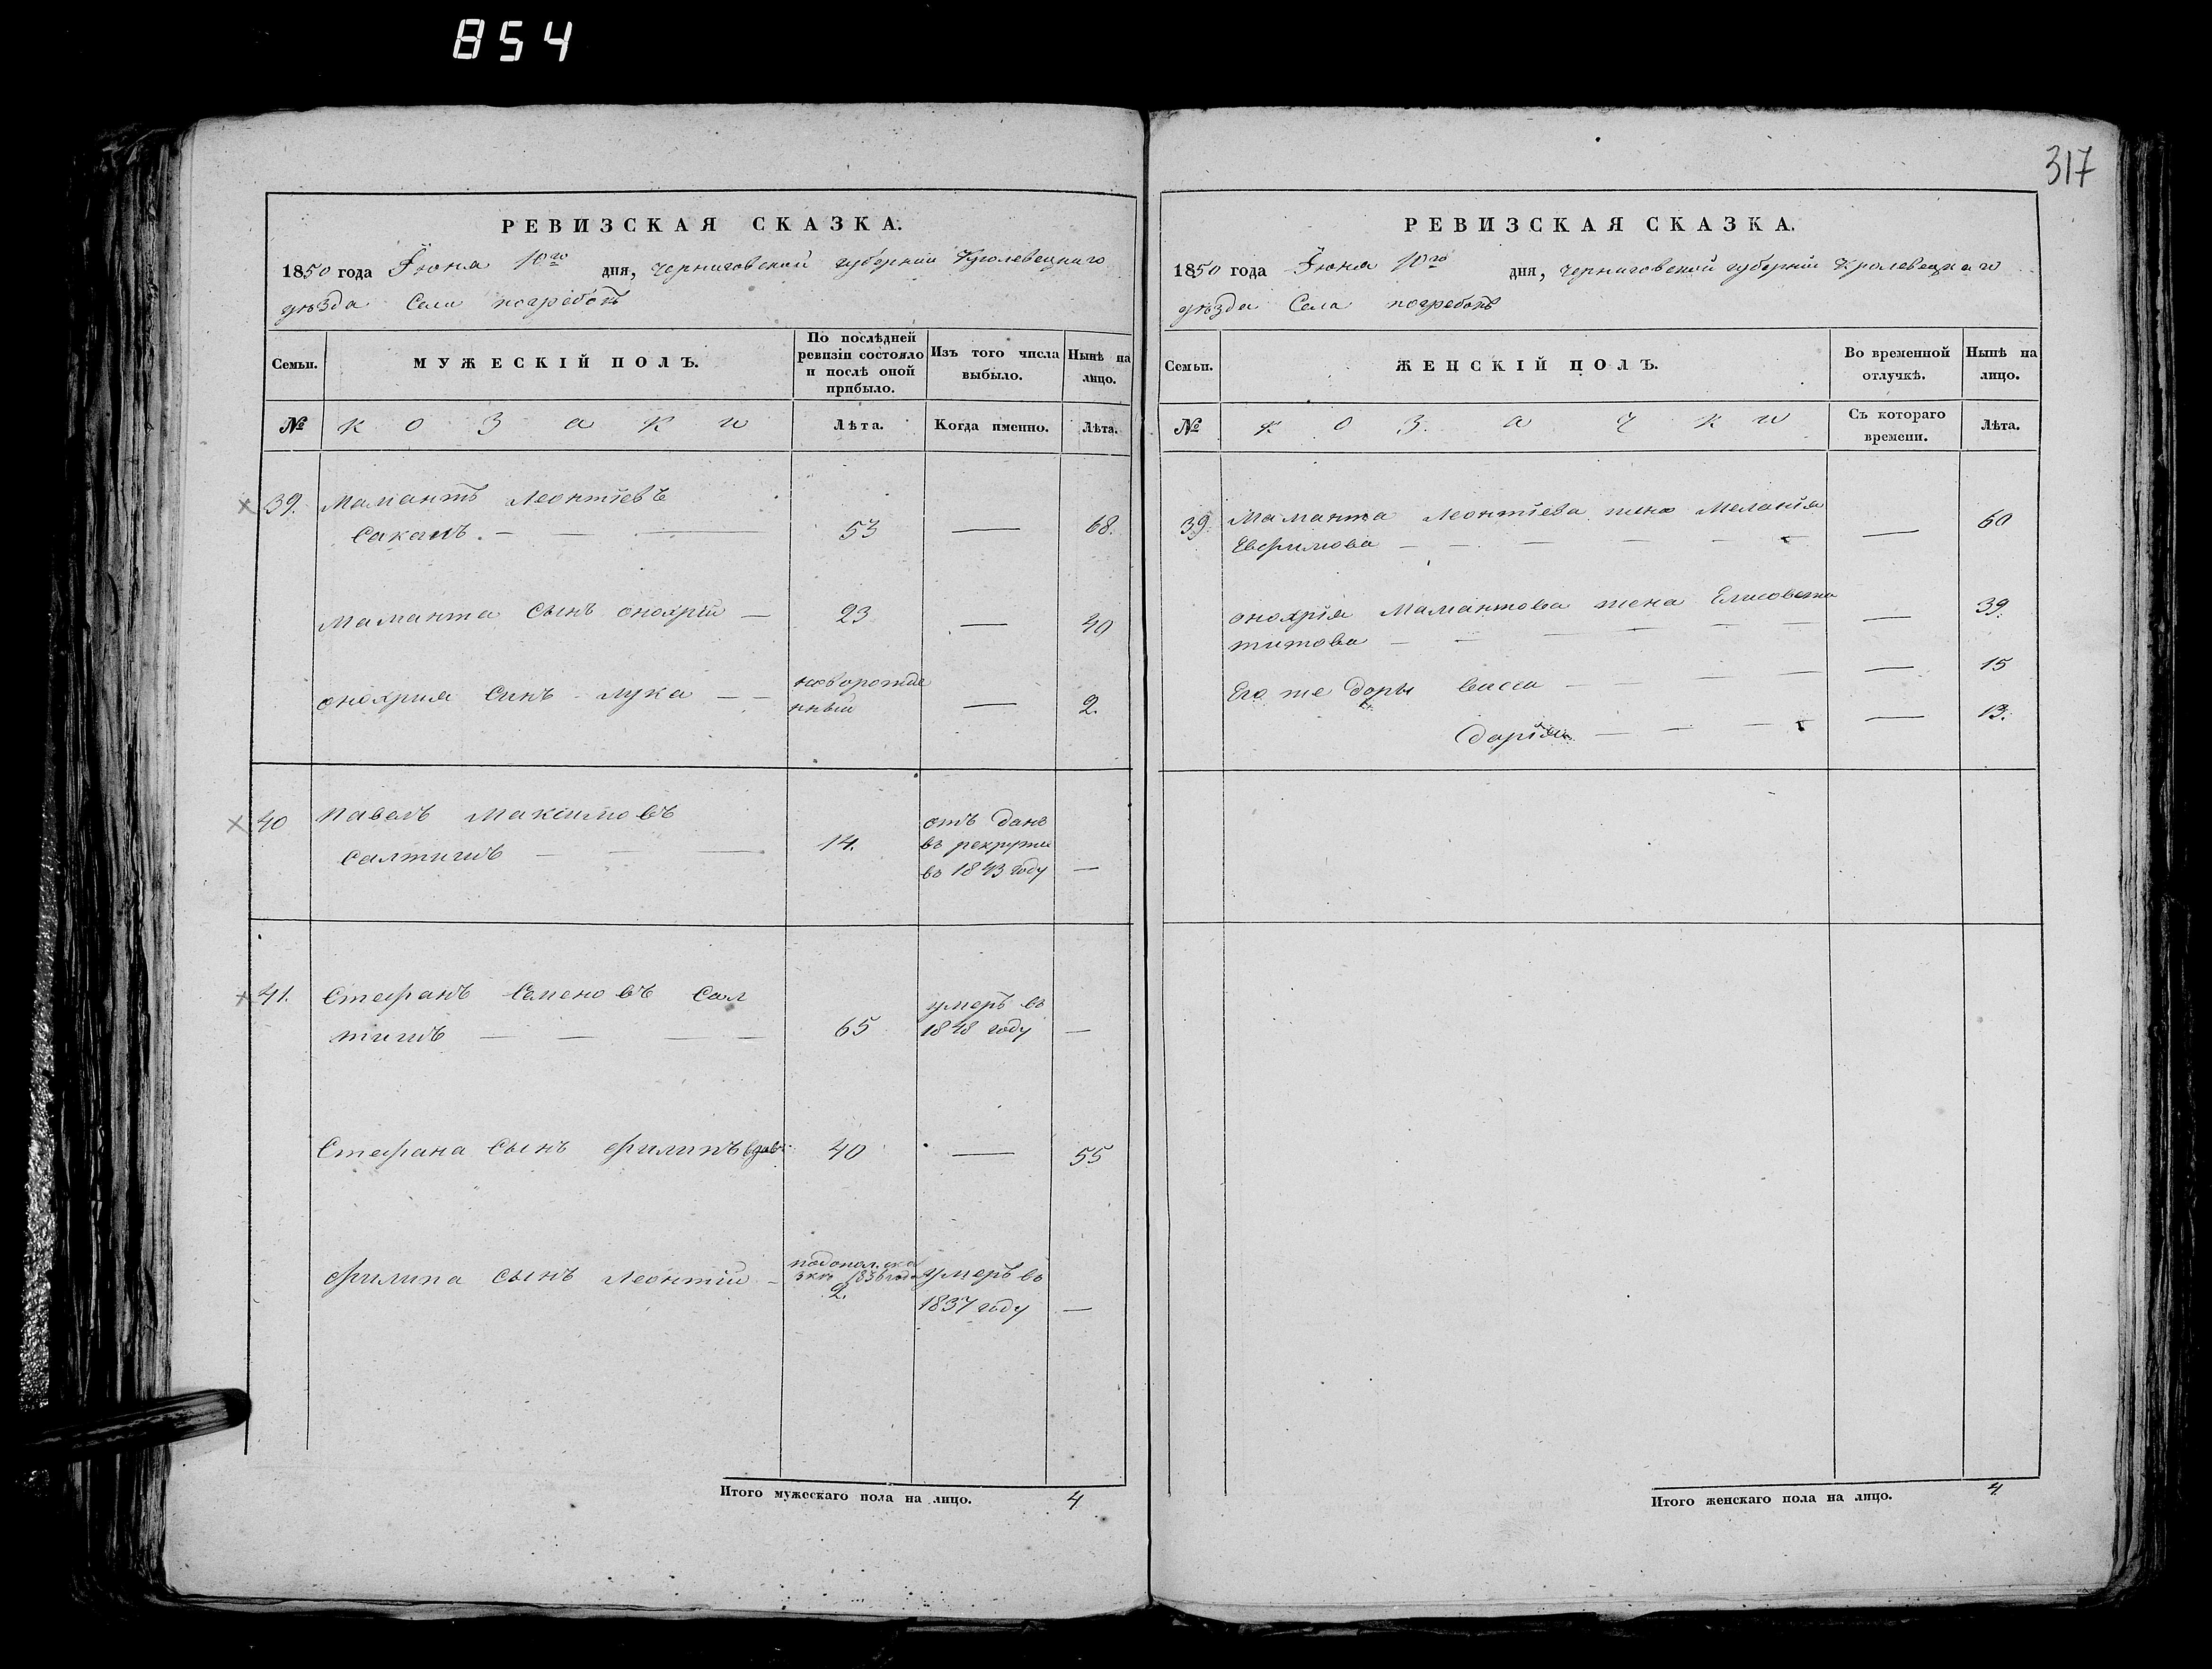 854
317
РЕВИЗСКАЯ СКАЗКА.
1850 года Іюня 10го дня, черниговской губерніи Кролевецкаго
уѣзда Села погребокъ
Семьи.
МУЖЕСКІЙ ПОЛЪ.
По послѣдней ревизіи состояло и послѣ оной прибыло.
Изъ того числа выбыло.
Нынѣ на лицо.
№
козаки
Лѣта.
Когда именно.
Лѣта.
39. Мамантъ Леонтіевъ
53 — 68.
Маманта Сынъ онохрій — 23 — 40
онохрия Синъ лука — — новорожде
нный — 2.
40 Павелъ Максимовъ
14. отъ данъ
въ рекруты
въ 1843 году —
41. Стефанъ Семеновъ Сал
тишъ — — — — 65 умеръ въ
1848 году —
Стефана Сынъ филипъ вдов 40 — 55
филипа Сынъ Леонтій —
1836 года
2.
умеръ въ
1837 году —
Итого мужескаго пола на лицо. 4
РЕВИЗСКАЯ СКАЗКА.
1850 года Іюня 10го дня, черниговской губерніи Кролевецкаго
уѣзда Села погребокъ
Семьи.
ЖЕНСКІЙ ПОЛЪ.
Во временной отлучкѣ.
Нынѣ на лицо.
№
козачки
Съ котораго времени.
Лѣта.
39 Маманта Леонтіева жена Меланія
Евфимова — — — — — — 60
онохрія Мамантова жена Елисовета
титова — — — — — — — 39.
Его же доры васса — — — — — 15
Дарія — — — — 13.
Итого женскаго пола на лицо. 4.